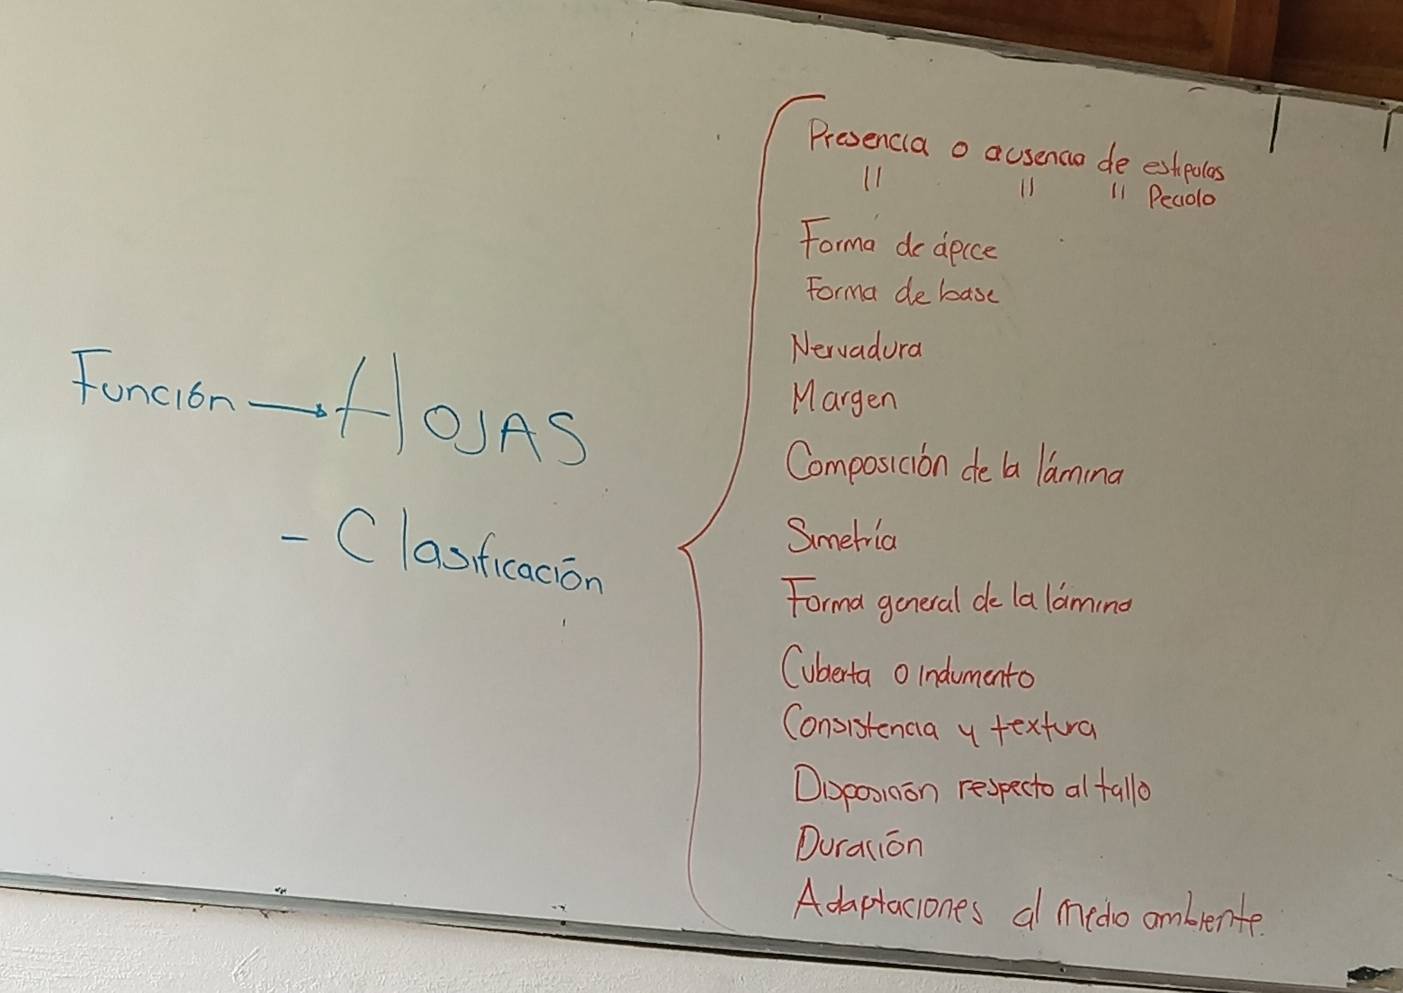 Presencia o ausencia de estipulas
" " " Peciolo
Forma de ápice
Forma de base
Nervadura
Margen
Función → HOJAS
Composición de la lámina
- Clasificación
Simetría
Forma general de la lámina
Cubierta o indumento
Consistencia y textura
Disposición respecto al tallo
Duración
Adaptaciones al medio ambiente.